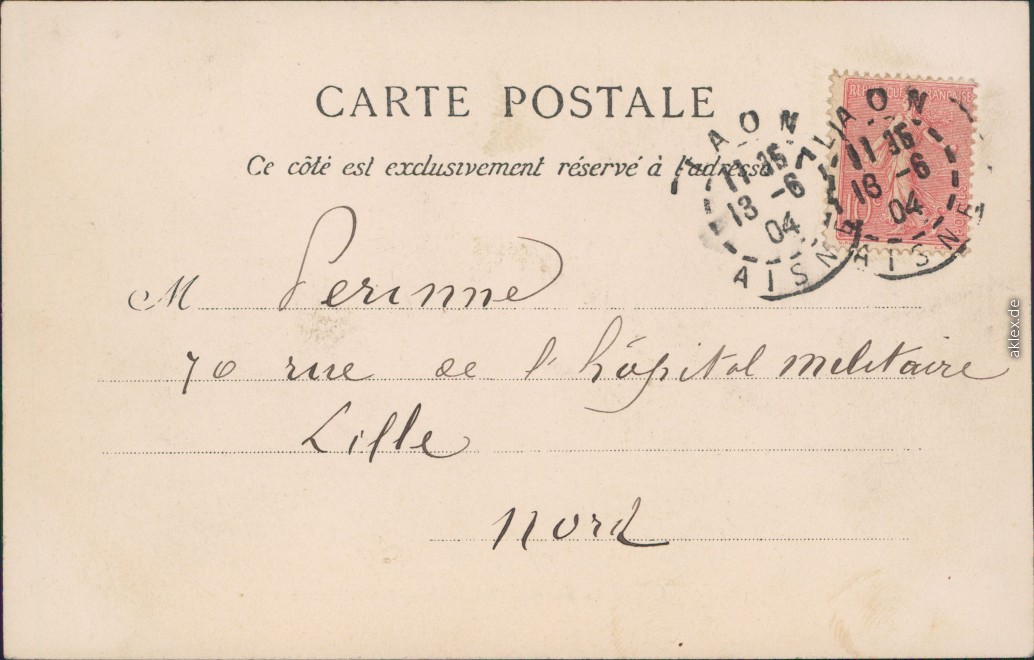 CARTE POSTALE
Ce côté est exclusivement réservé à l'adresse
RÉPUBLIQUE FRANÇAISE
10
LAON
11 35
18 -6
04
AISNE
LAON
11 35
18 -6
04
AISNE
M Perinne
70 rue de l'hôpital militaire
Lille
Nord
aklex.de